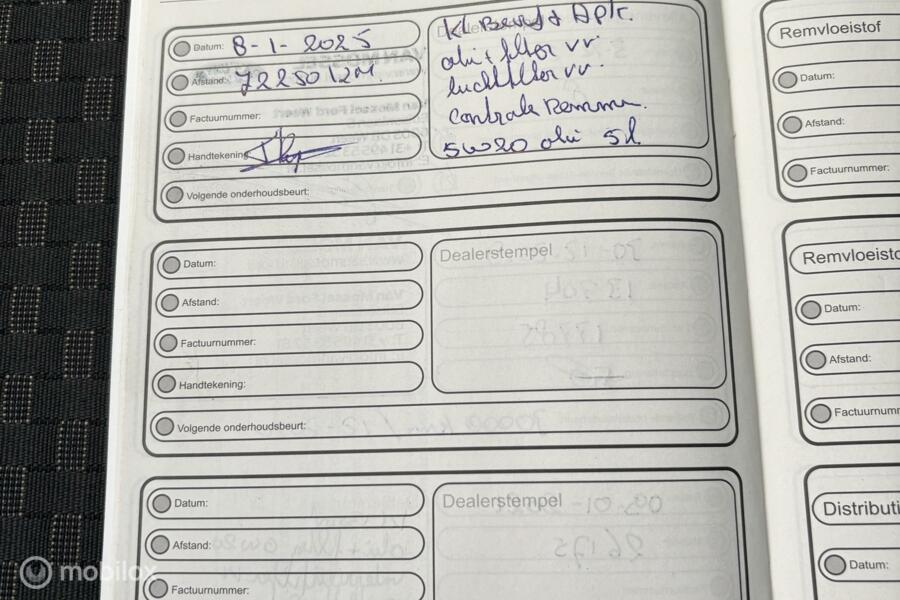 Datum: 8-1-2025
Afstand: 72250 km
Factuurnummer:
Handtekening
Volgende onderhoudsbeurt:
Kl Beurt + Apk.
olie + filter vv.
luchtfilter vv.
controle Remmen.
5W20 olie 5l
Datum:
Afstand:
Factuurnummer:
Handtekening:
Volgende onderhoudsbeurt:
Dealerstempel
Datum:
Afstand:
Factuurnummer:
Dealerstempel
Remvloeistof
Datum:
Afstand:
Factuurnummer:
Remvloeisto
Datum:
Afstand:
Factuurnumm
Distributi
Datum:
mobilox